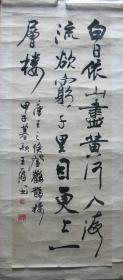 白日依山盡黃河入海
流欲窮千里目更上一
層樓
唐王之渙登鸛鵲樓
甲子暮秋王